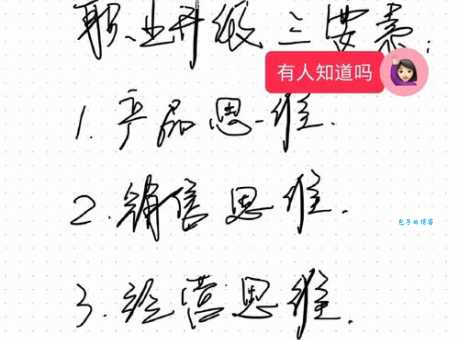 职业升级三要素:
有人知道吗
1. 产品思维.
2. 销售思维.
包子の博客
3. 经营思维.